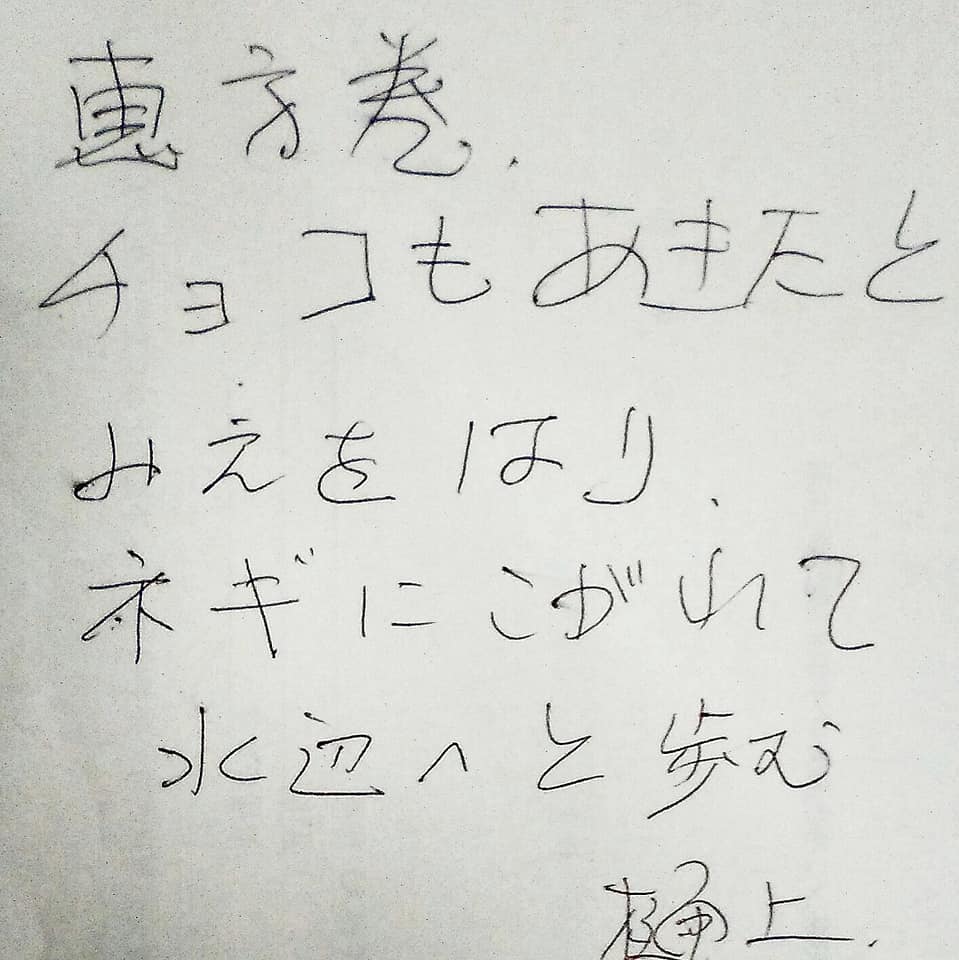 恵方巻、
チョコもあきたと
みえをはり、
ネギにこがれて
水辺へと歩む
樋上.